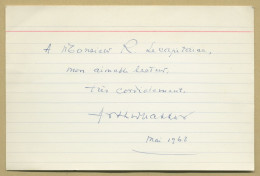 A Monsieur R. Levavasseur,
mon aimable lecteur.
Très cordialement.
Mai 1963